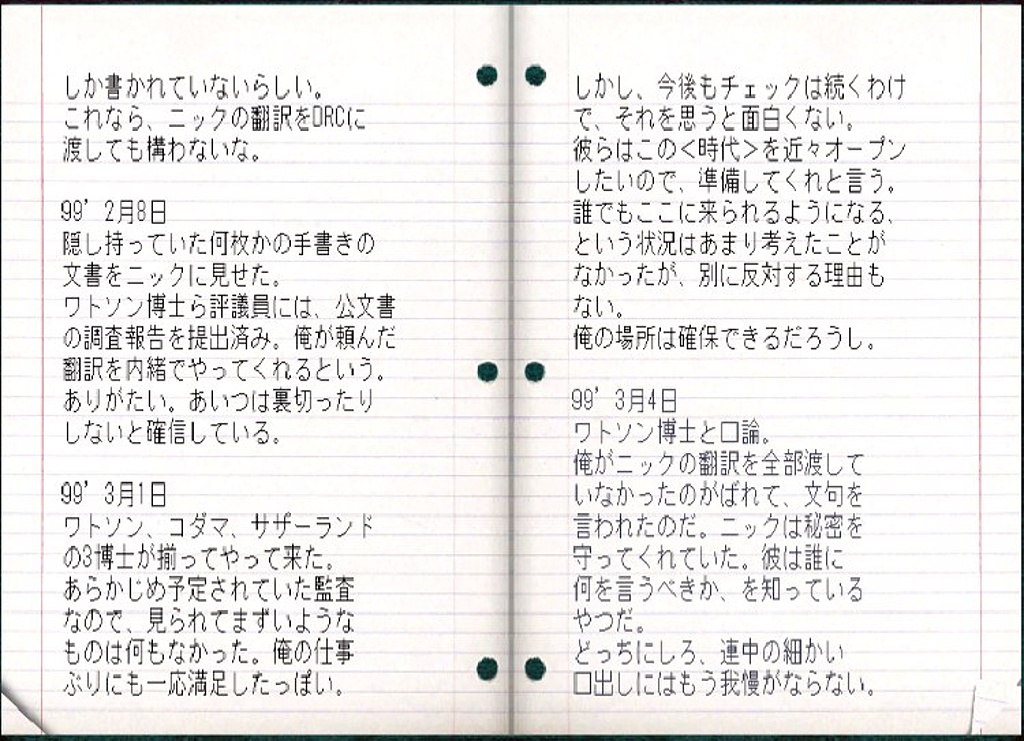 しか書かれていないらしい。
これなら、ニックの翻訳をDRCに
渡しても構わないな。
99' 2月8日
隠し持っていた何枚かの手書きの
文書をニックに見せた。
ワトソン博士ら評議員には、公文書
の調査報告を提出済み。俺が頼んだ
翻訳を内緒でやってくれるという。
ありがたい。あいつは裏切ったり
しないと確信している。
99' 3月1日
ワトソン、コダマ、サザーランド
の3博士が揃ってやって来た。
あらかじめ予定されていた監査
なので、見られてまずいような
ものは何もなかった。俺の仕事
ぶりにも一応満足したっぽい。
しかし、今後もチェックは続くわけ
で、それを思うと面白くない。
彼らはこの<時代>を近々オープン
したいので、準備してくれと言う。
誰でもここに来られるようになる、
という状況はあまり考えたことが
なかったが、別に反対する理由も
ない。
俺の場所は確保できるだろうし。
99' 3月4日
ワトソン博士と口論。
俺がニックの翻訳を全部渡して
いなかったのがばれて、文句を
言われたのだ。ニックは秘密を
守ってくれていた。彼は誰に
何を言うべきか、を知っている
やつだ。
どっちにしろ、連中の細かい
口出しにはもう我慢がならない。